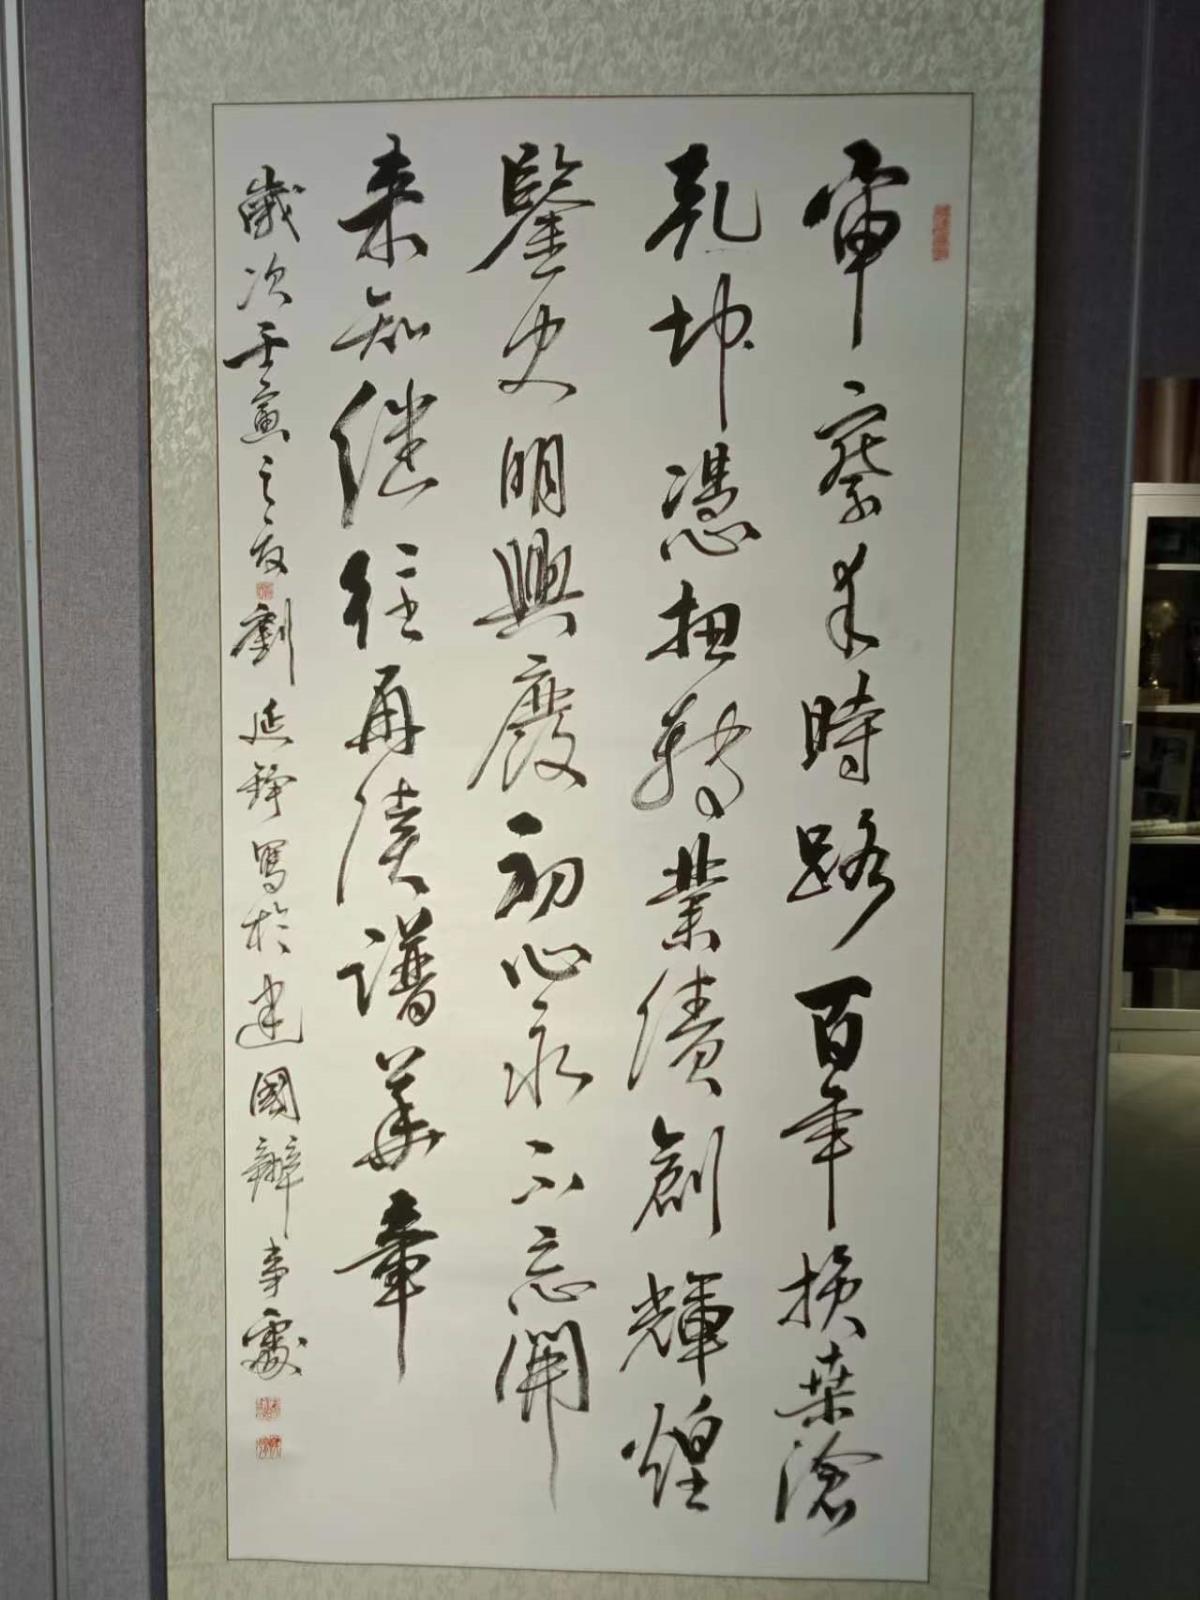 审察来時路百年换桑滄
乾坤憑扭轉業績創輝煌
鑒史明興廢初心永不忘開
来知继往再續譜華章
歲次壬寅之 劉延錚寫於建國辦事處